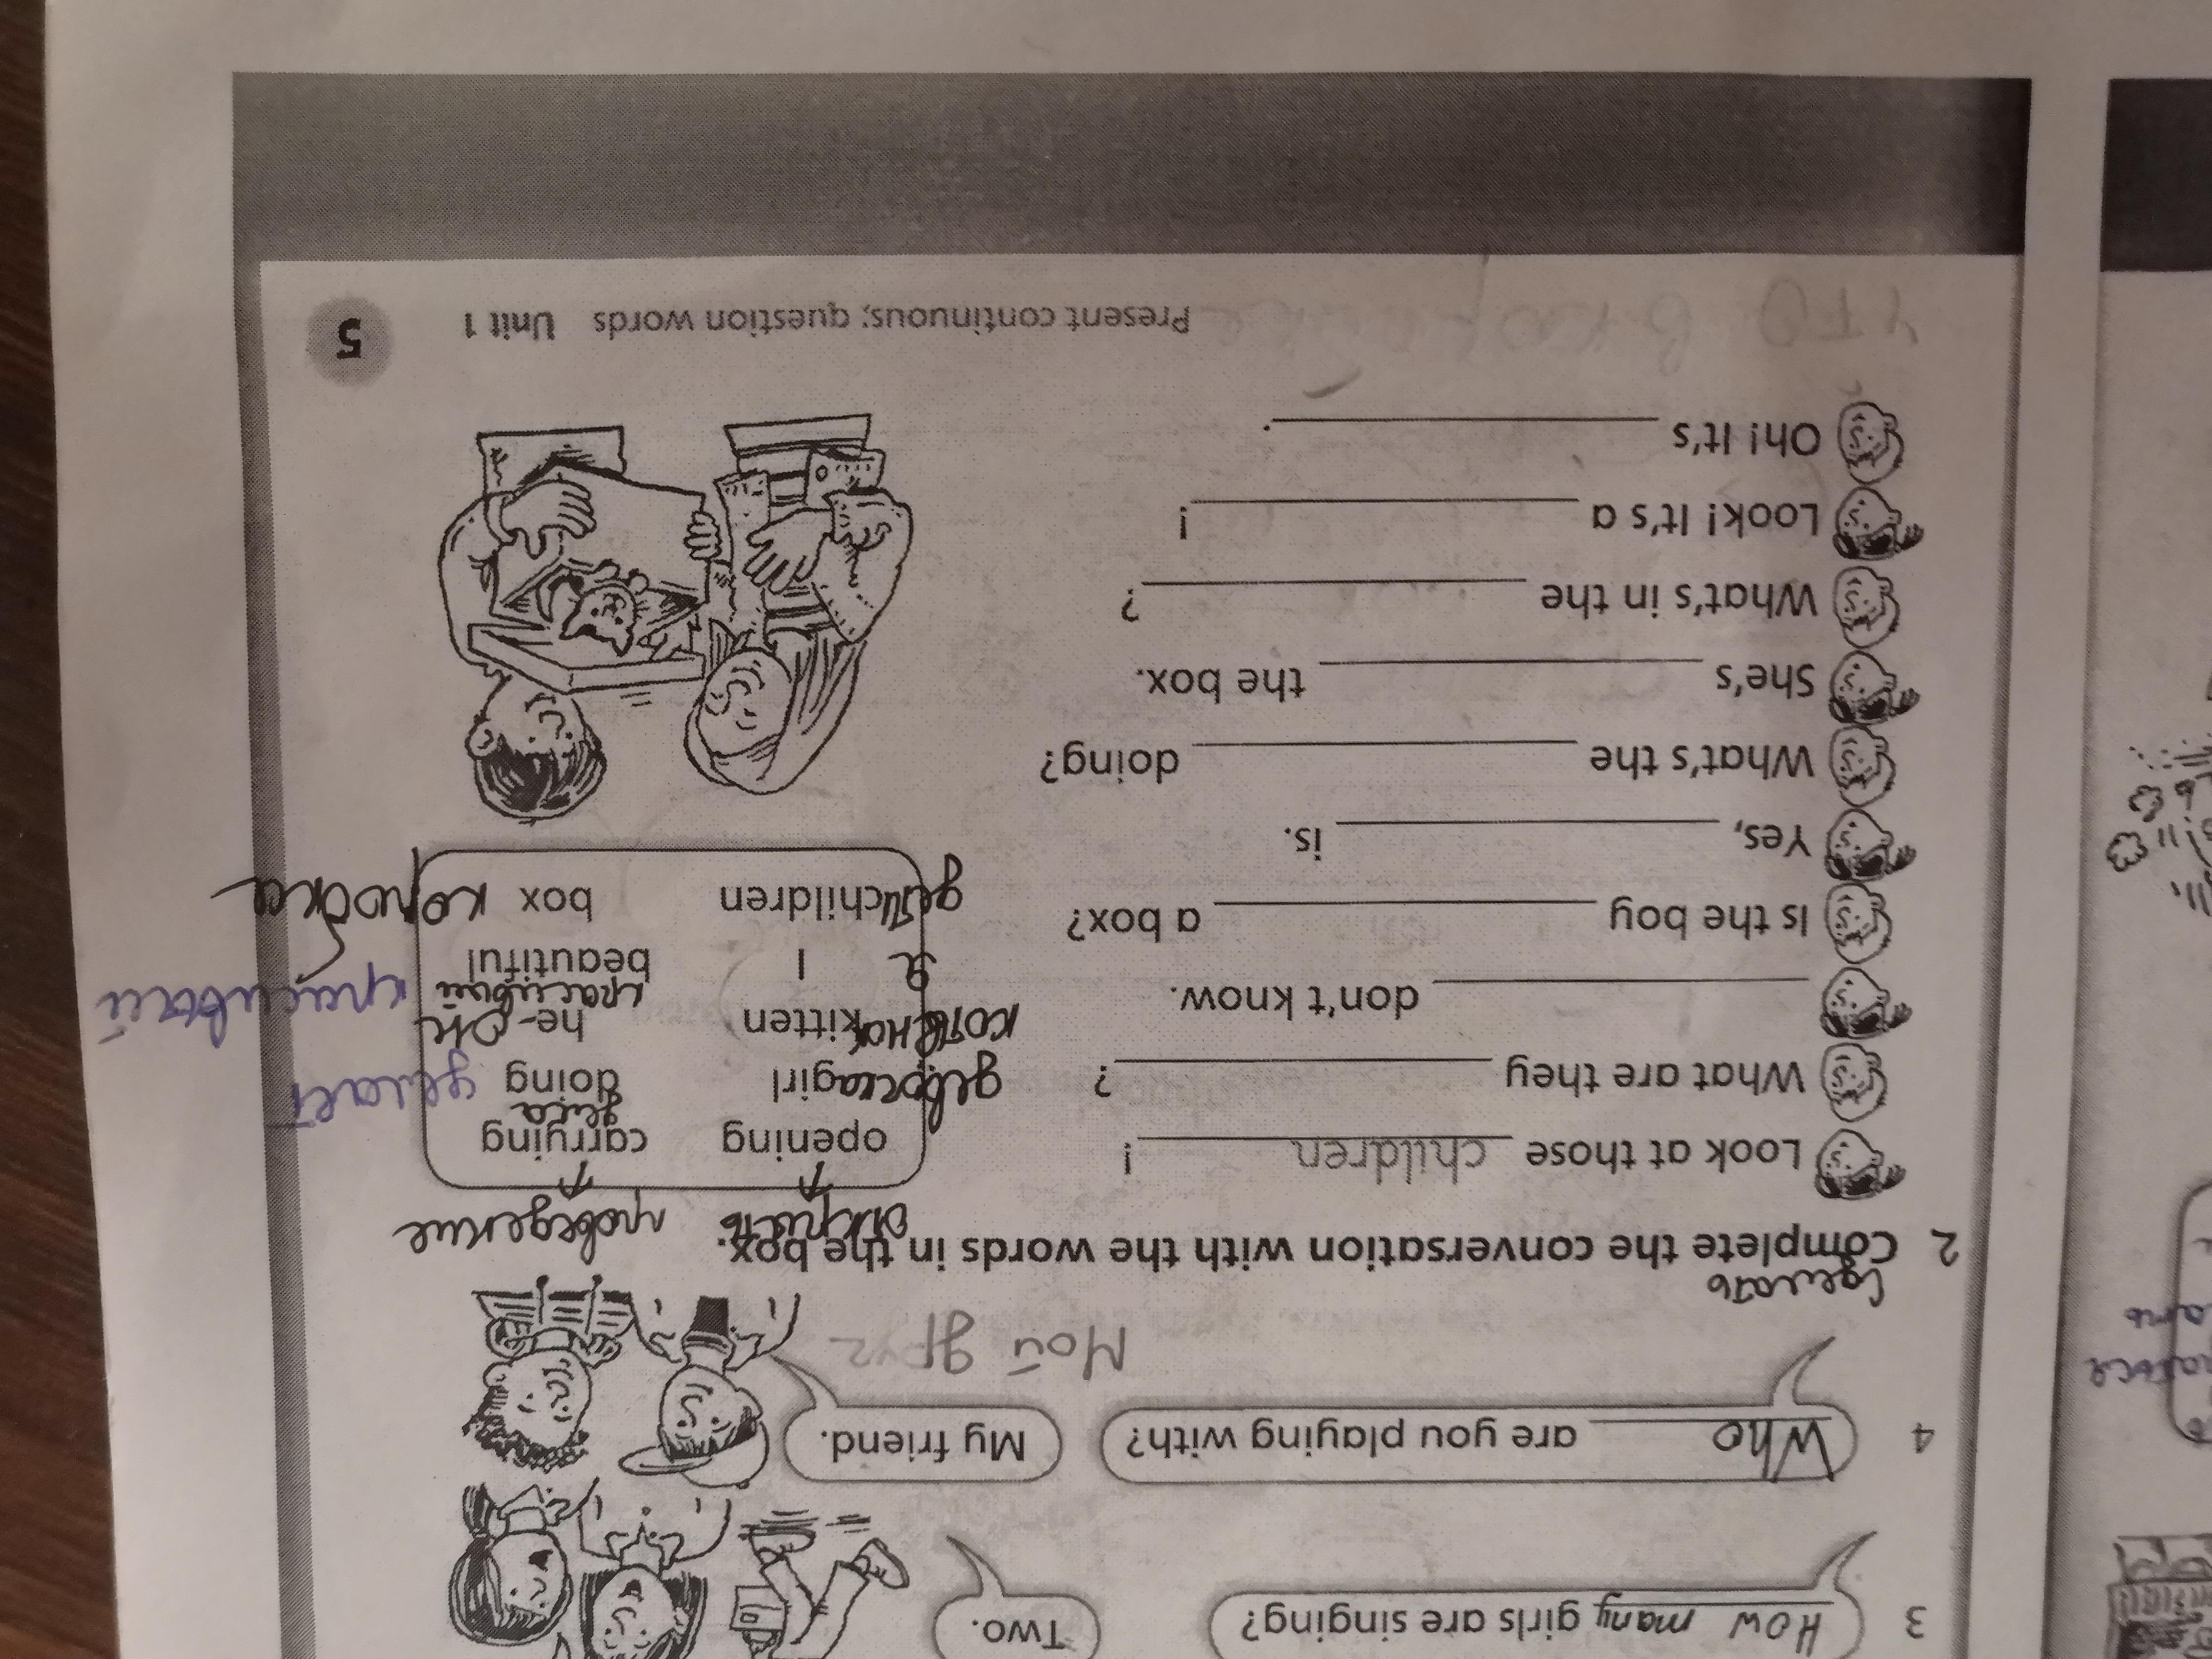 3 How many girls are singing? Two.
4 Who are you playing with? My friend.
Мой друг
Сделать
2 Complete the conversation with the words in the box.
открыть проведение
Look at those children !
What are they ?
don't know.
Is the boy a box?
Yes, is.
What's the doing?
She's the box.
What's in the ?
Look! It's a !
Oh! It's .
opening carrying
дела
девочка girl doing делает
котенок kitten he - он
красивый
я I beautiful красивый
дети children box коробка
Present continuous; question words Unit 1 5
что в